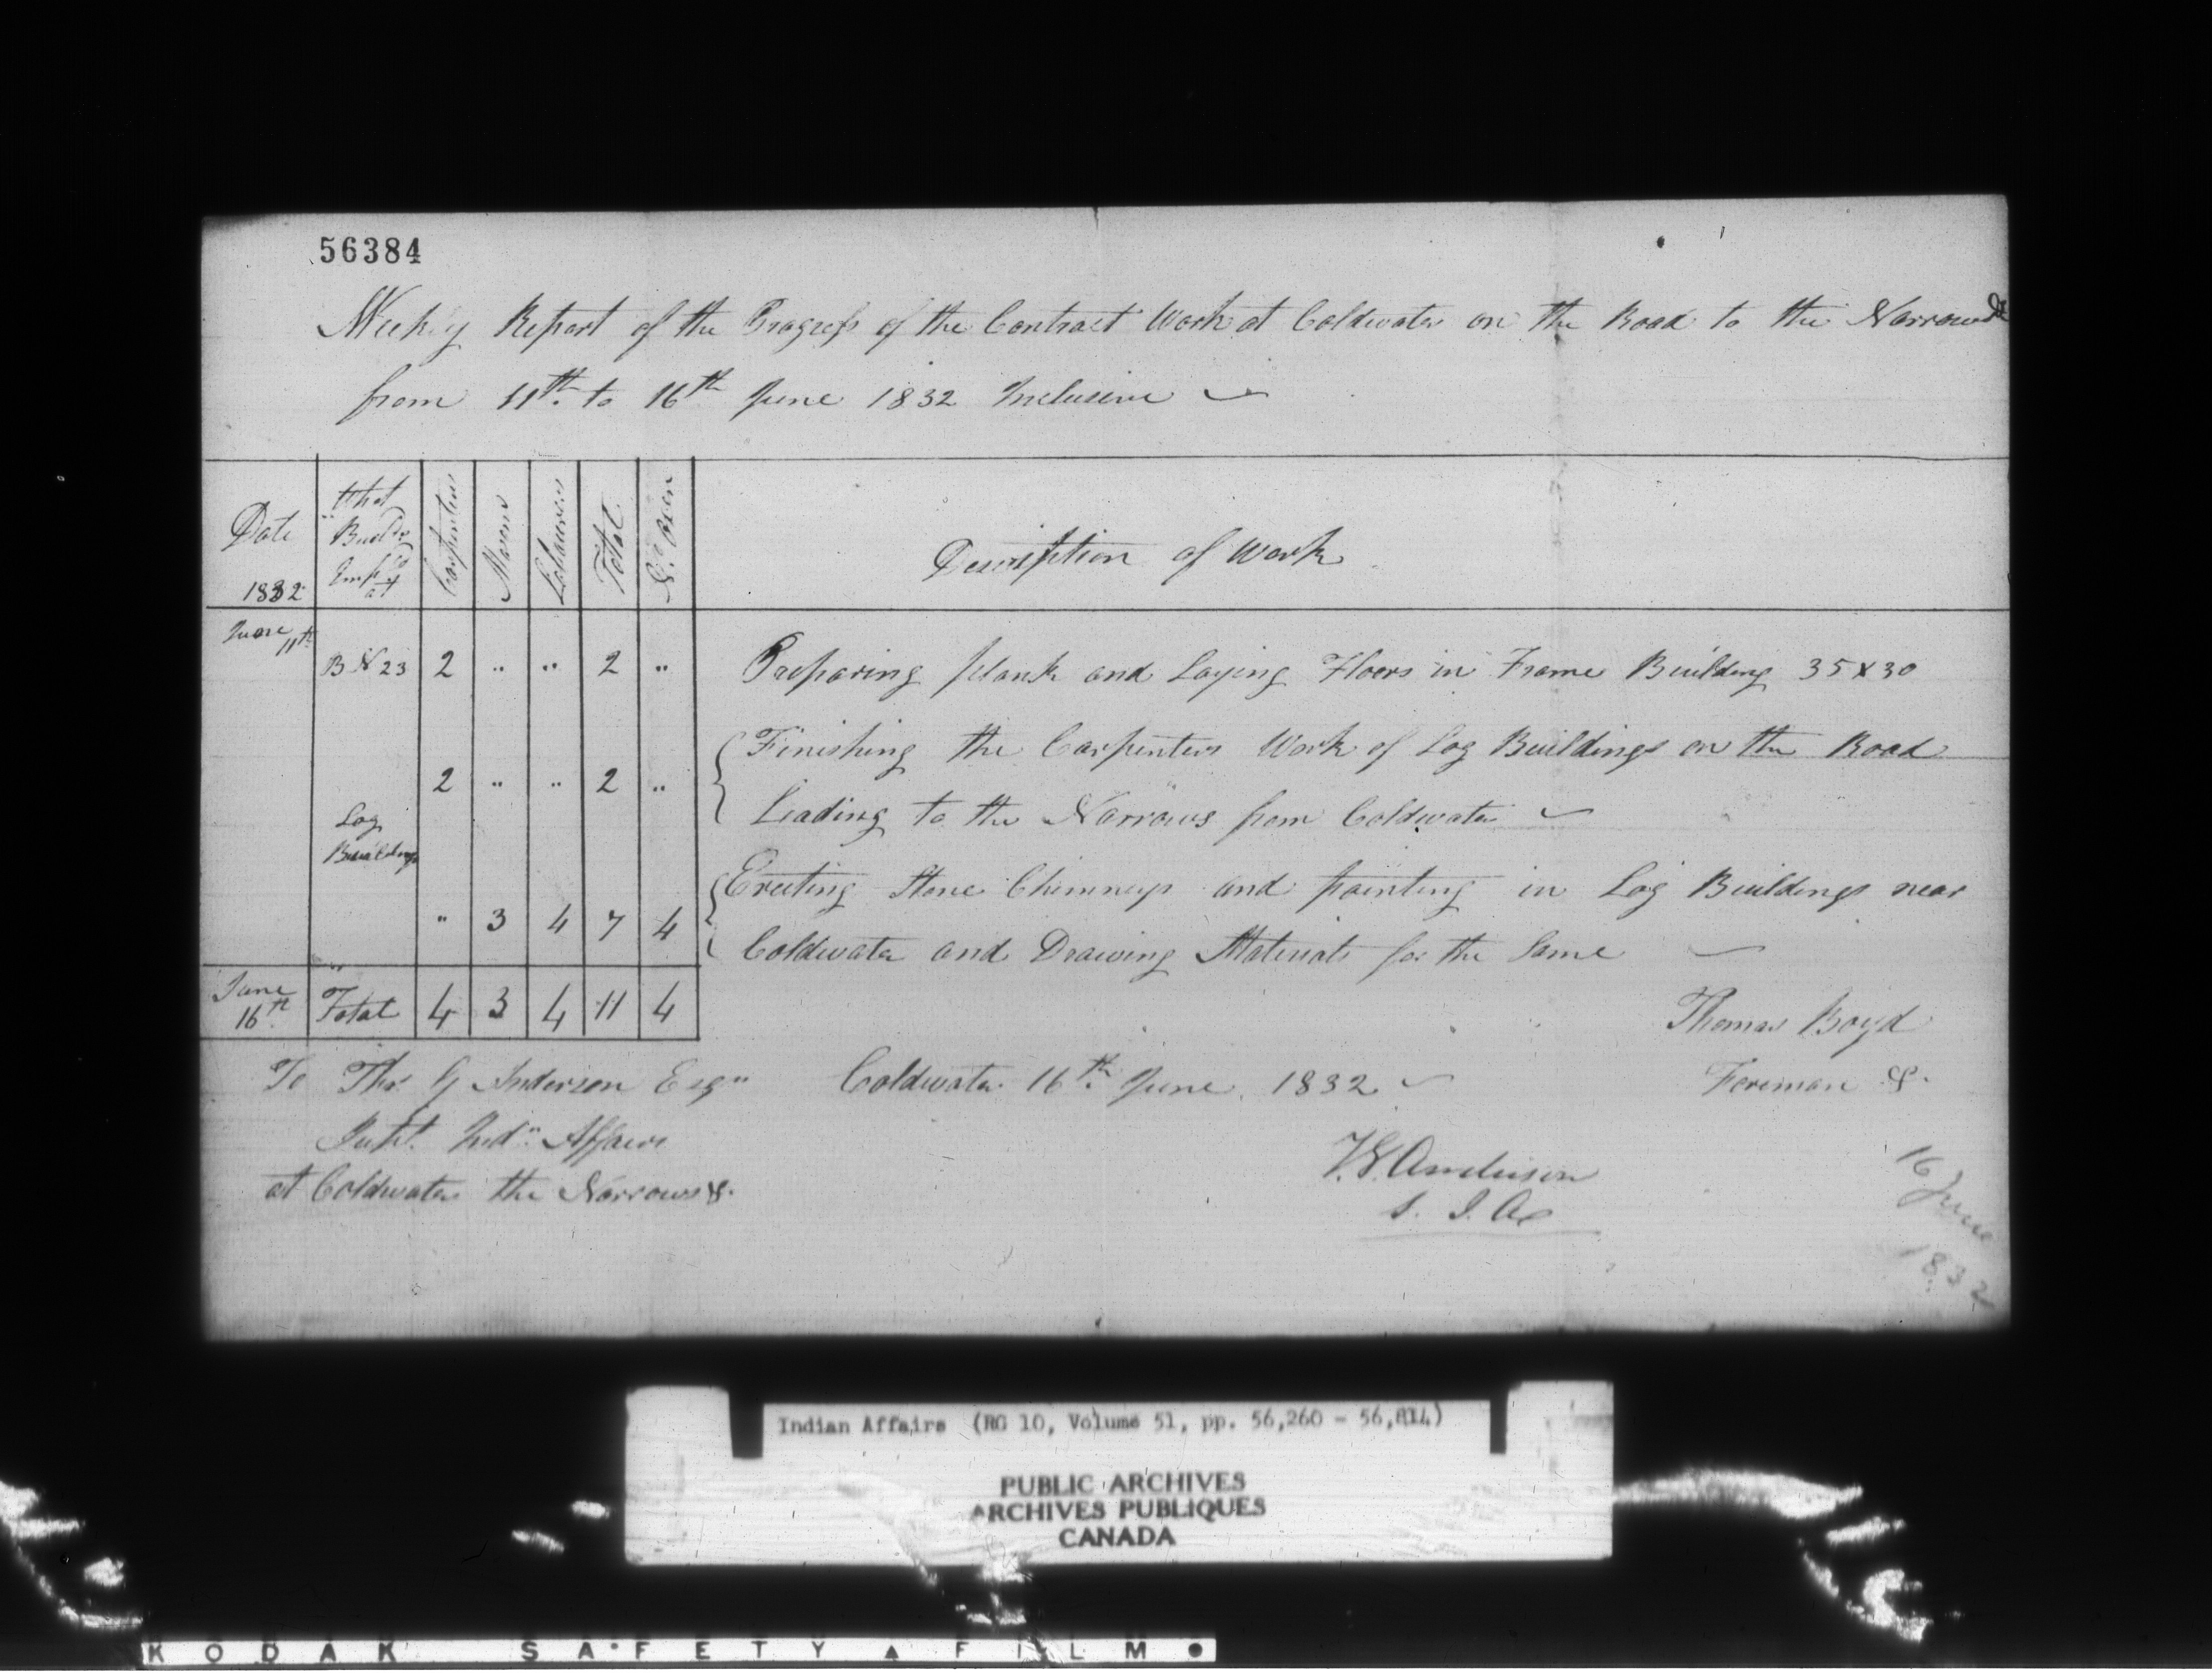 56384
Weekly Report of the Progress of the Contract Work at Coldwater on the Road to the Narrows &c
from 11th to 16th June 1832 Inclusive
Date 1832 | What Buildg Emp'd at | Carpenters | Masons | Labourers | Total | No. Oxen | Description of Work
June 11th
B No 23 | 2 | " | " | 2 | " | Preparing plank and Laying Floors in Frame Building 35 x 30
Finishing the Carpenters Work of Log Buildings on the Road
2 | " | " | 2 | "
Leading to the Narrows from Coldwater
Log Buildings
Erecting Stone Chimneys and pointing in Log Buildings near
" | 3 | 4 | 7 | 4
Coldwater and Drawing Materials for the Same
June 16th | Total | 4 | 3 | 4 | 11 | 4
Thomas Boyd
Foreman &c.
To Thos. G Anderson Esqr
Coldwater 16th June 1832
Supt. Indn. Affairs
at Coldwater the Narrows &c.
T.G. Anderson
S. I. A
16 June 1832
Indian Affairs (RG 10, Volume 51, pp. 56,260 - 56,814)
PUBLIC ARCHIVES
ARCHIVES PUBLIQUES
CANADA
KODAK SAFETY FILM